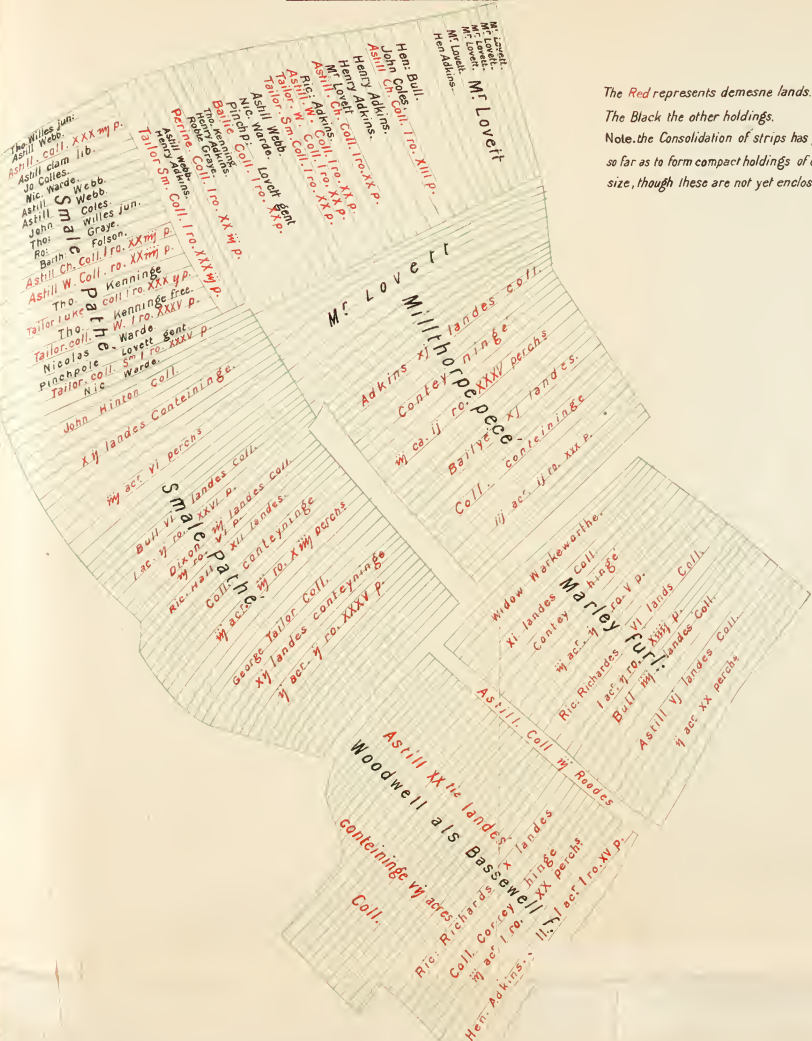 The Red represents demesne lands.
The Black the other holdings.
Note. the Consolidation of strips has
so far as to form compact holdings of
size, though these are not yet enclos
Mr. Lovett.
Mr. Lovett.
Mr. Lovett.
Mr. Lovett.
Hen Adkins.
Mr Lovett
Hen: Bull.
John Coles.
Astill Ch. Coll. I ro. XIII p.
Henry Adkins.
Henry Adkins.
Mr Lovett
Astill Ch. Coll. I ro. XX p.
Ric: Adkins.
Astill. W. Coll. I ro. XX p.
Tailor. Sm. Coll. I ro. XX p.
Astill Webb.
Nic. Warde.
Pinchp: Lovett gent
Bailie Coll. I ro. XX p.
Tho. Kenning
Henry Adkins.
Robte Graye.
Perine. Coll. I ro. XX iij p.
Astill Webb.
Henry Adkins.
Tailor Sm. Coll. I ro. XXX iij p.
Tho Willes jun:
Astill Webb.
Astill. coll. XXX iiij p.
Astill clam lib.
Jo Colles.
Nic. Warde.
Astill Webb.
Astill Webb.
John Coles.
Tho: Willes jun.
Ro: Graye.
Barth: Folson.
Smale Pathe
Astill Ch. Coll. I ro. XX iiij p.
Astill W. Coll. I ro. XX iiij p.
Tho. Kenninge
Tailor Luke coll I ro. XXX ij p.
Tho. Kenninge free.
Tailor. coll. W. I ro. XXXV p.
Nicolas Warde
Pinchpole Lovett gent.
Tailor. coll. Sm I ro. XXXV p.
Nic Warde.
John Hinton Coll.
Xij landes Conteininge.
iiij acr. vi perchs
Smale Pathé
Bull VI landes Coll.
I ac. ij ro. XXVI p.
Dixon iiij landes coll.
iij ro. VI p.
Ric. Hall XII landes.
Coll. conteyninge
iij acr. iij ro. X iiij perchs
George Tailor Coll.
Xij landes conteyninge
ij acr. ij ro. XXXV p.
Mr. Lovett
Millthorpe pece
Adkins xj landes coll.
Conteyninge
iij ca. ij ro. XXXV perchs
Bailye XI landes.
Coll. conteininge
iij acr. ij ro. XXX p.
Marley furl:
Widow Warkeworthe.
XI landes coll.
Contey hinge
iij acr. ij ro. V p.
Ric. Richardes VI lands Coll.
I acr. ij ro. XIIIj p.
Bull iiij landes Coll.
Astill Vj landes Coll.
ij acr XX perchs
Astill. Coll iij Roodes
Woodwell als Bassewell f.
Astill XX tie landes.
conteininge vij acres
Coll.
Ric: Richards X landes
Coll. Contey hinge
iij acr. I ro. XX perchs
Hen. Adkins. I acr. I ro. XV p.